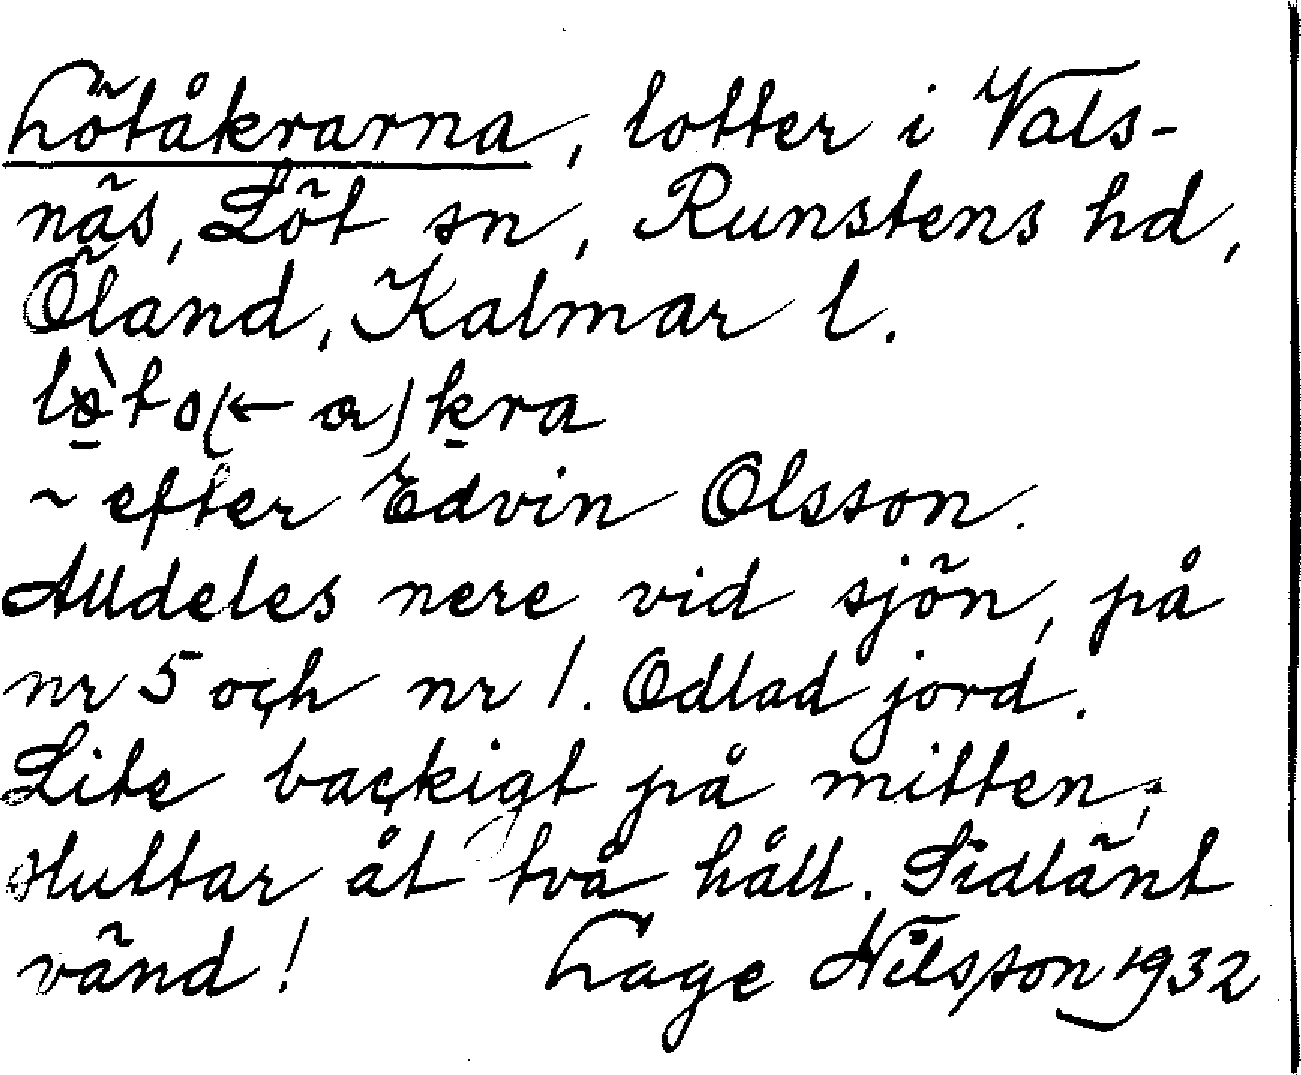 Lötåkrarna, lotter i Vals-
näs, Löt sn, Runstens hd,
Öland, Kalmar l.
lö̀to(← a)kra
~ efter Edvin Olsson.
Alldeles nere vid sjön, på
nr 5 och nr 1. Odlad jord.
Lite backigt på mitten,
sluttar åt två håll. Sidlänt
vänd! Lage Nilsson 1932